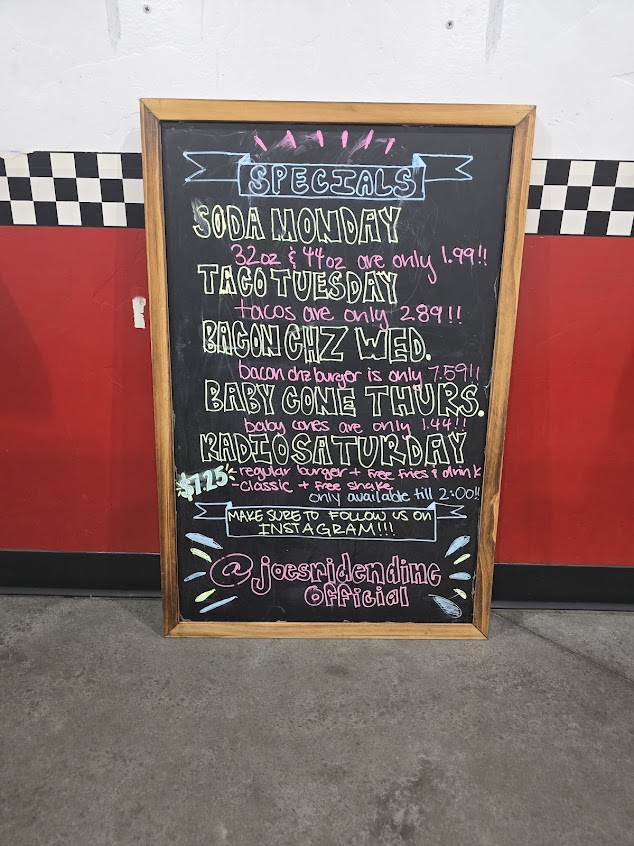 SPECIALS
SODA MONDAY
32oz & 44oz are only 1.99!!
TACO TUESDAY
tacos are only 2.89!!
BACON CHZ WED.
bacon chz burger is only 7.59!!
BABY CONE THURS.
baby cones are only 1.44!!
RADIO SATURDAY
$7.25 - regular burger + free fries & drink
- classic + free shake
only available till 2:00!!
MAKE SURE TO FOLLOW US ON
INSTAGRAM!!!
@joesridendinc
official